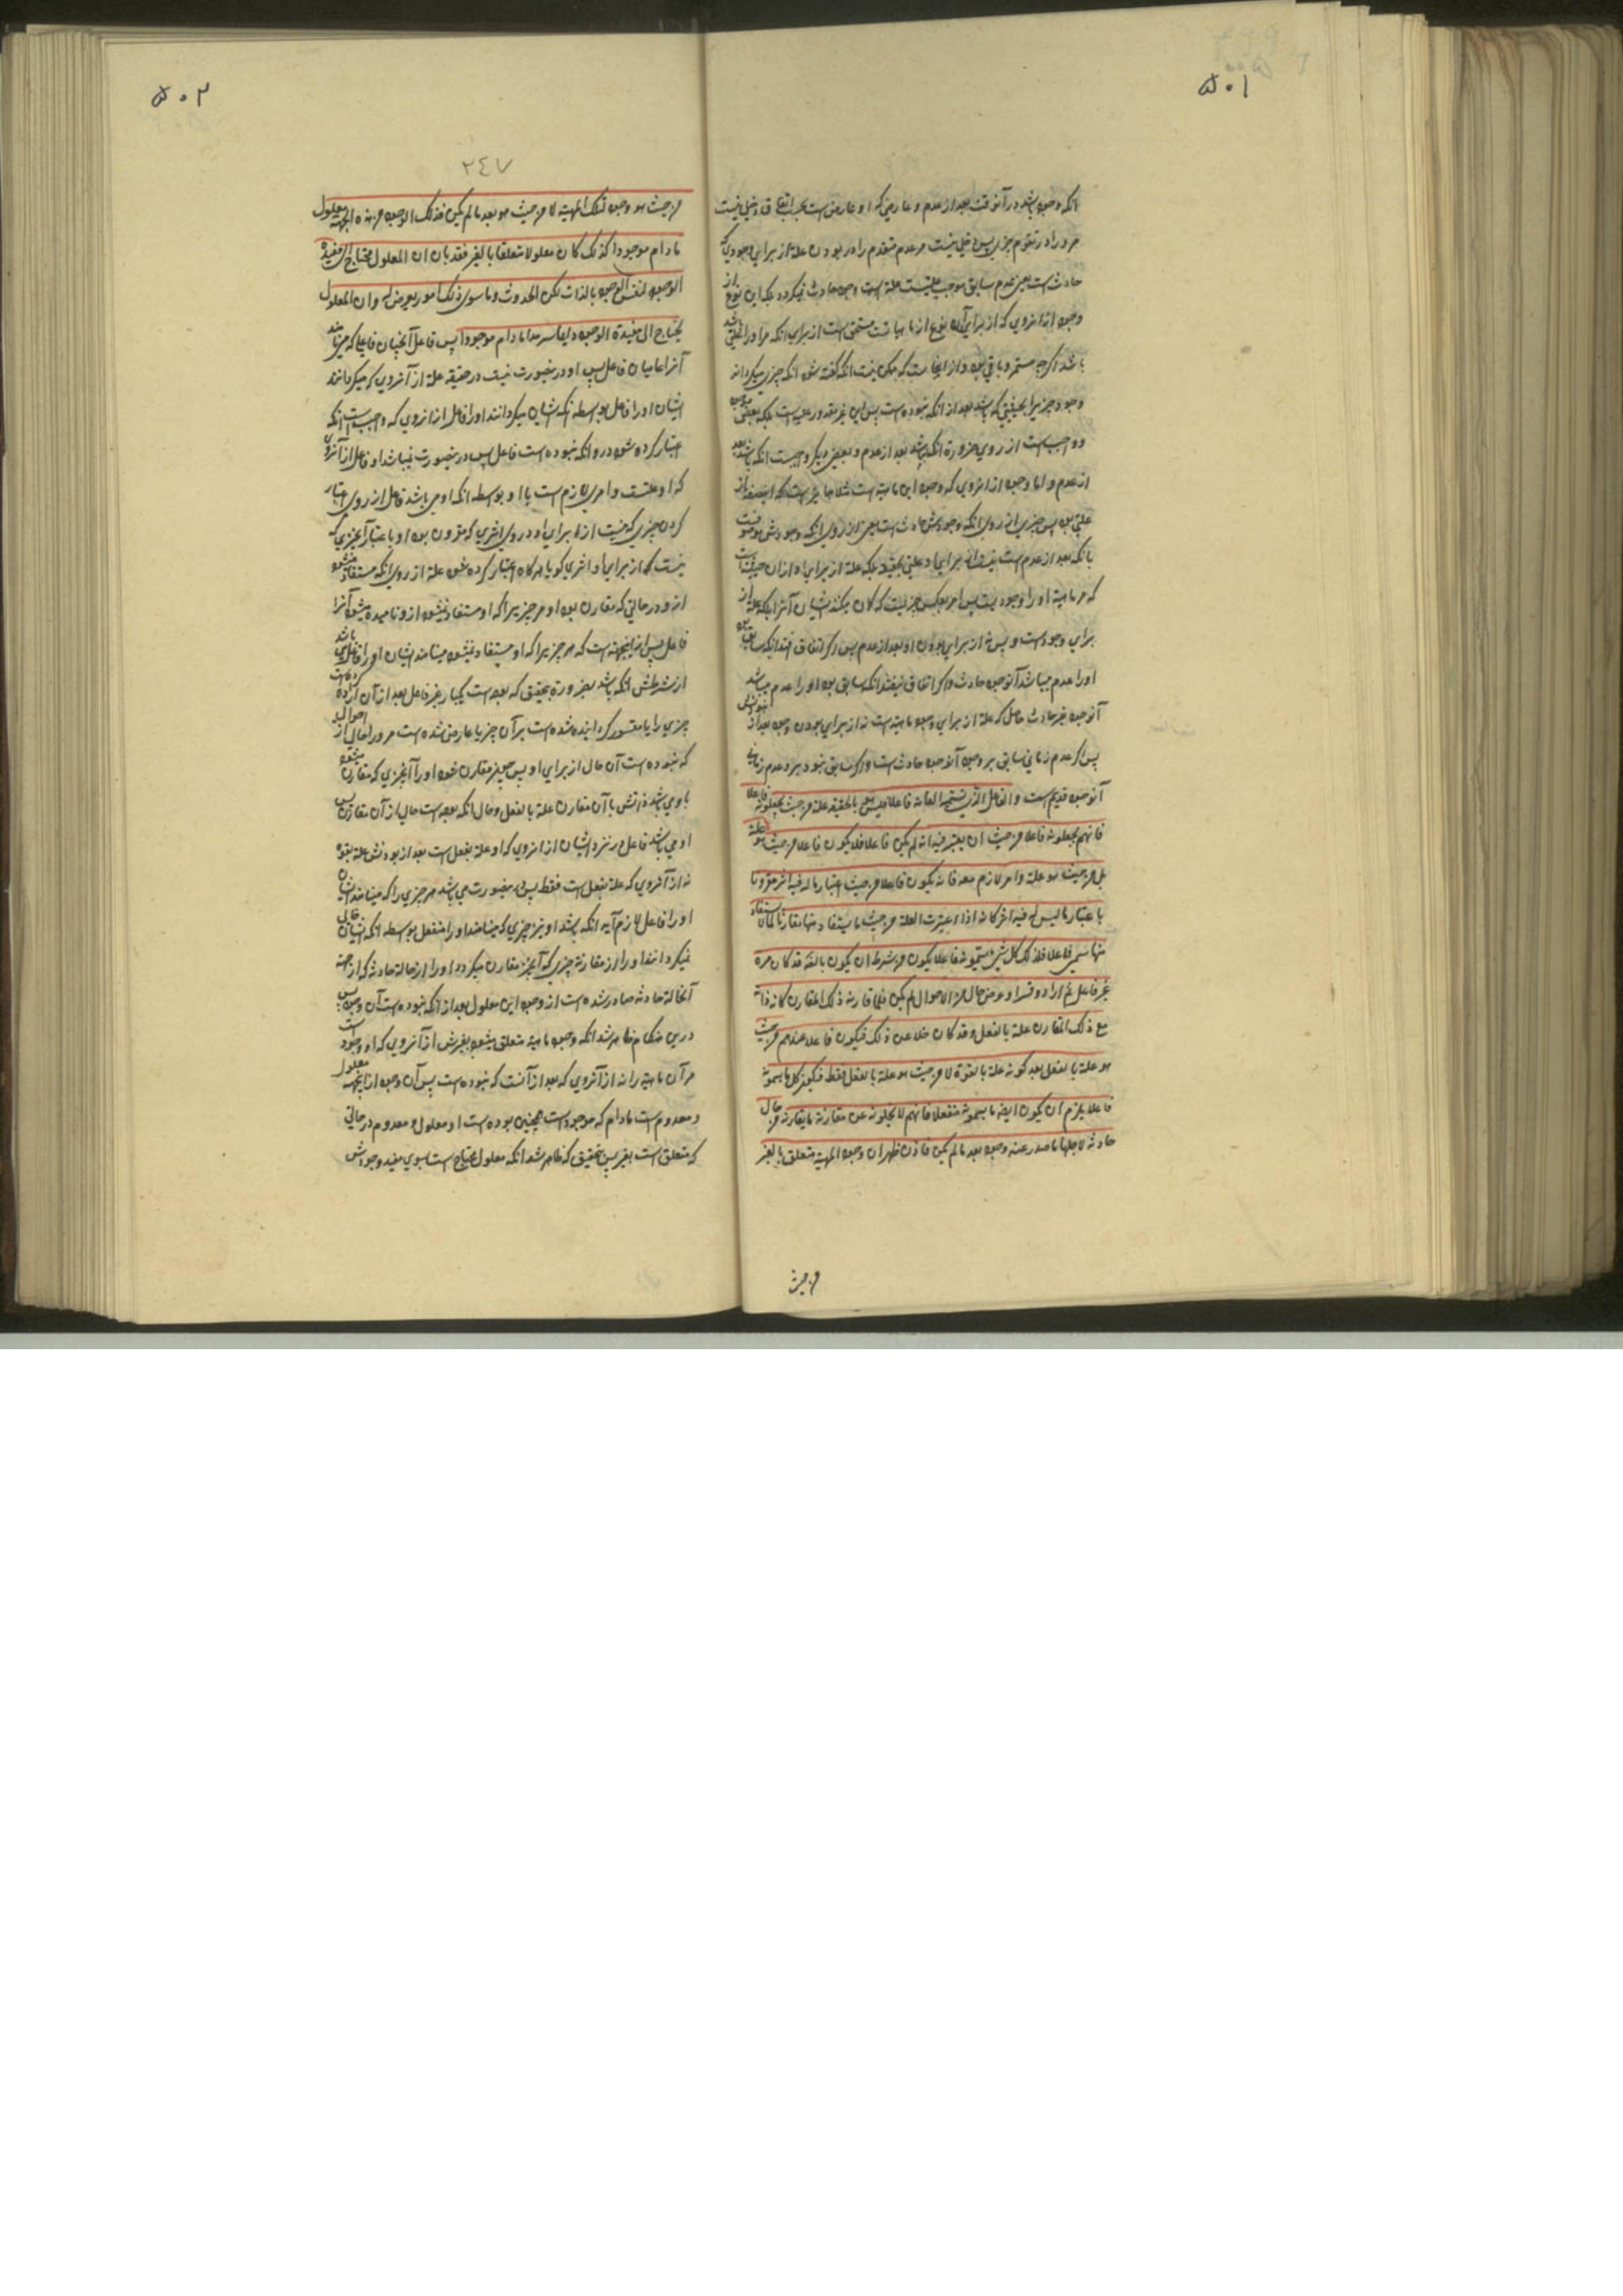 ۵۰۱
انکه وجود باشد در آنوقت بعد از عدم و عارضی که او عارض است بحسب اتفاق دخیل نیست
مر او را در تقوم چیزی پس دخیل نیست مر عدم متقدم را در بودن علة از برای وجودی که
حادث است یعنی عدم سابق موجب علیت علة است وجود حادث نمیگردد بلکه این نوع از
وجود از انروی که از برای آن نوع از ماهیاتست مستحق است از برای انکه مر او را علتی باشد
باشد اگرچه مستمر و باقی بود و از اینجاست که ممکن نیست انکه گفته شود انکه چیزی میگرداند
وجود چیز را بحیثیتی که باشد بعد از انکه نبوده است پس این غیر مقدور علیه است بلکه بعضی
و واجب است از روی ضرورة انکه باشد بعد از عدم و بعضی دیگر واجبست انکه باشد بعد
از عدم و اما وجود از انروی که وجود این ماهیة است
علتی بود پس چیزی از روی انکه وجودش حادث است یعنی از روی انکه وجودش موصوفست
بانکه بعد از عدم است نیست از برای او علتی بحقیقة بلکه علة از برای او از ان حیثیتست
که مر ماهیة او را وجود یست پس امر بعکس چیزیست که گمان میکنند ایشان آنرا بلکه علة از
برای وجود است و بس نه از برای بودن او بعد از عدم پس اگر اتفاق افتد انکه سابق بود
او را عدم میباشد آنوجود حادث و اگر اتفاق نیفتد انکه سابق بود او را عدم میباشد
آنوجود غیر حادث حاصل که علة از برای وجود ماهیة است نه از برای بودن وجود بعد از نبودنش
پس اگر عدم زمانی سابق بر وجود آنوجود حادث است و اگر سابق نبود بر او عدم زمانی
آنوجود قدیم است و الفاعل الذی تسمیه العامة فاعلا فلیس هو بالحقیقة علة من حیث یجعلونه فاعلا
فانهم یجعلونه فاعلا من حیث ان یعتبر فیه انه لم یکن فاعلا فلا یکون فاعلا من حیث هو علة
بل من حیث هو علة و امر لازم معه فانه یکون فاعلا من حیث اعتبار ما له فیه اثر مقرونا
باعتبار ما لیس له فیه اثر کانه اذا اعتبرت العلة من حیث ما یستفاد منها مقارنا لما لا یستفاد
منها سمی فاعلا فلذلک کل شئ یسمونه فاعلا یکون من شرطه ان یکون بالضرورة قد کان مرة
غیر فاعل ثم اراد او قسر او عرض حال من الاحوال لم یکن فلما قارنه ذلک المقارن کان ذاته
مع ذلک المقارن علة بالفعل و قد کان خلا عن ذلک فیکون فاعلا عندهم من حیث
هو علة بالفعل بعد کونه علة بالقوة لا من حیث هو علة بالفعل فقط فیکون کل ما یسمونه
فاعلا یلزم ان یکون ایضا ما یسمونه منفعلا فانهم لا یخلونه عن مقارنة ما یقارنه من حال
حادثة لاجلها ما صدر عنه وجود بعد ما لم یکن فاذن ظهر ان وجود المهیة متعلق بالغیر
من حیث
۵۰۲
۲٤۷
من حیث هو وجود لتلک المهیة لا من حیث هو بعد ما لم یکن فذلک الوجود من هذه الجهة معلول
مادام موجودا کذلک کان معلولا متعلقا بالغیر فقد بان ان المعلول محتاج الی مفیده
الوجود لنفس الوجود بالذات لکن الحدوث و ما سوی ذلک امور یعرض له و ان المعلول
یحتاج الی مفیدة الوجود دایما سرمدا مادام موجودا پس فاعل آنچنان فاعلی که مینامند
آنرا عامیان فاعل پس او در ینصورت نیست در حقیقه علة از آنروی که میگردانند
ایشان او را فاعل بواسطه انکه ایشان میگردانند او را فاعل از انروی که واجب است انکه
اعتبار کرده شود در او انکه نبوده است فاعل پس در ینصورت نمیباشد او فاعل از آنروی
که او علتست و امری لازم است با او بواسطه انکه او می باشد فاعل از روی اعتبار
کردن چیزی که نیست از برای او در وی اثری که مقرون بود او باعتبار آنچیزی که
نیست که از برای او اثری گویا هرگاه اعتبار کرده شود علة از روی انکه مستفاد میشود
از و در حالتی که مقارن بود او مر چیزیرا که او مستفاد نمیشود از و نامیده میشود آنرا
فاعل پس از اینجهت است که هر چیزیرا که او مستفاد نمیشود مینامند ایشان او را فاعل می باشد
از شرطش انکه باشد بضرورة بتحقیق که بوده است یکبار غیر فاعل بعد از آن اراده کرده است
چیزی را یا مقسور گردانیده شده است بر آن چیز یا عارض شده است مر او را حالی از احوالیکه
که نبوده است آن حال از برای او پس چونکه مقارن شود او را آنچیزی که مقارن میشود
با وی باشد ذاتش با آن مقارن علة بالفعل و حال انکه بوده است خالی از آن مقارن پس
او می باشد فاعل در نزد ایشان از انروی که او علة بفعل است بعد از بودنش علة بقوه
نه از آنروی که علة بفعل است فقط پس درینصورت می باشد هر چیزی را که مینامند ایشان
او را فاعل لازم آید انکه باشد او نیز چیزی که مینامند او را منفعل بواسطه انکه ایشان خالی
نمیگردانند او را از مقارنة چیزی که آنچیز مقارن میگردد او را از حالة حادثه که از جهة
آنحالة حادثه صادر شده است از و وجود این معلول بعد از انکه نبوده است آن وجود پس
درین هنگام ظاهر شد انکه وجود ماهیة متعلق میشود بغیرش از آنروی که او وجود است
مر آن ماهیة را نه از آنروی که بعد از آنست که نبوده است پس آن وجود از اینجهة معلول
و معدوم است مادام که موجود است همچنین بوده است او معلول و معدوم در حالتی
که متعلق است بغیر پس بتحقیق که ظاهر شد انکه معلول محتاج است بسوی مفید وجودش